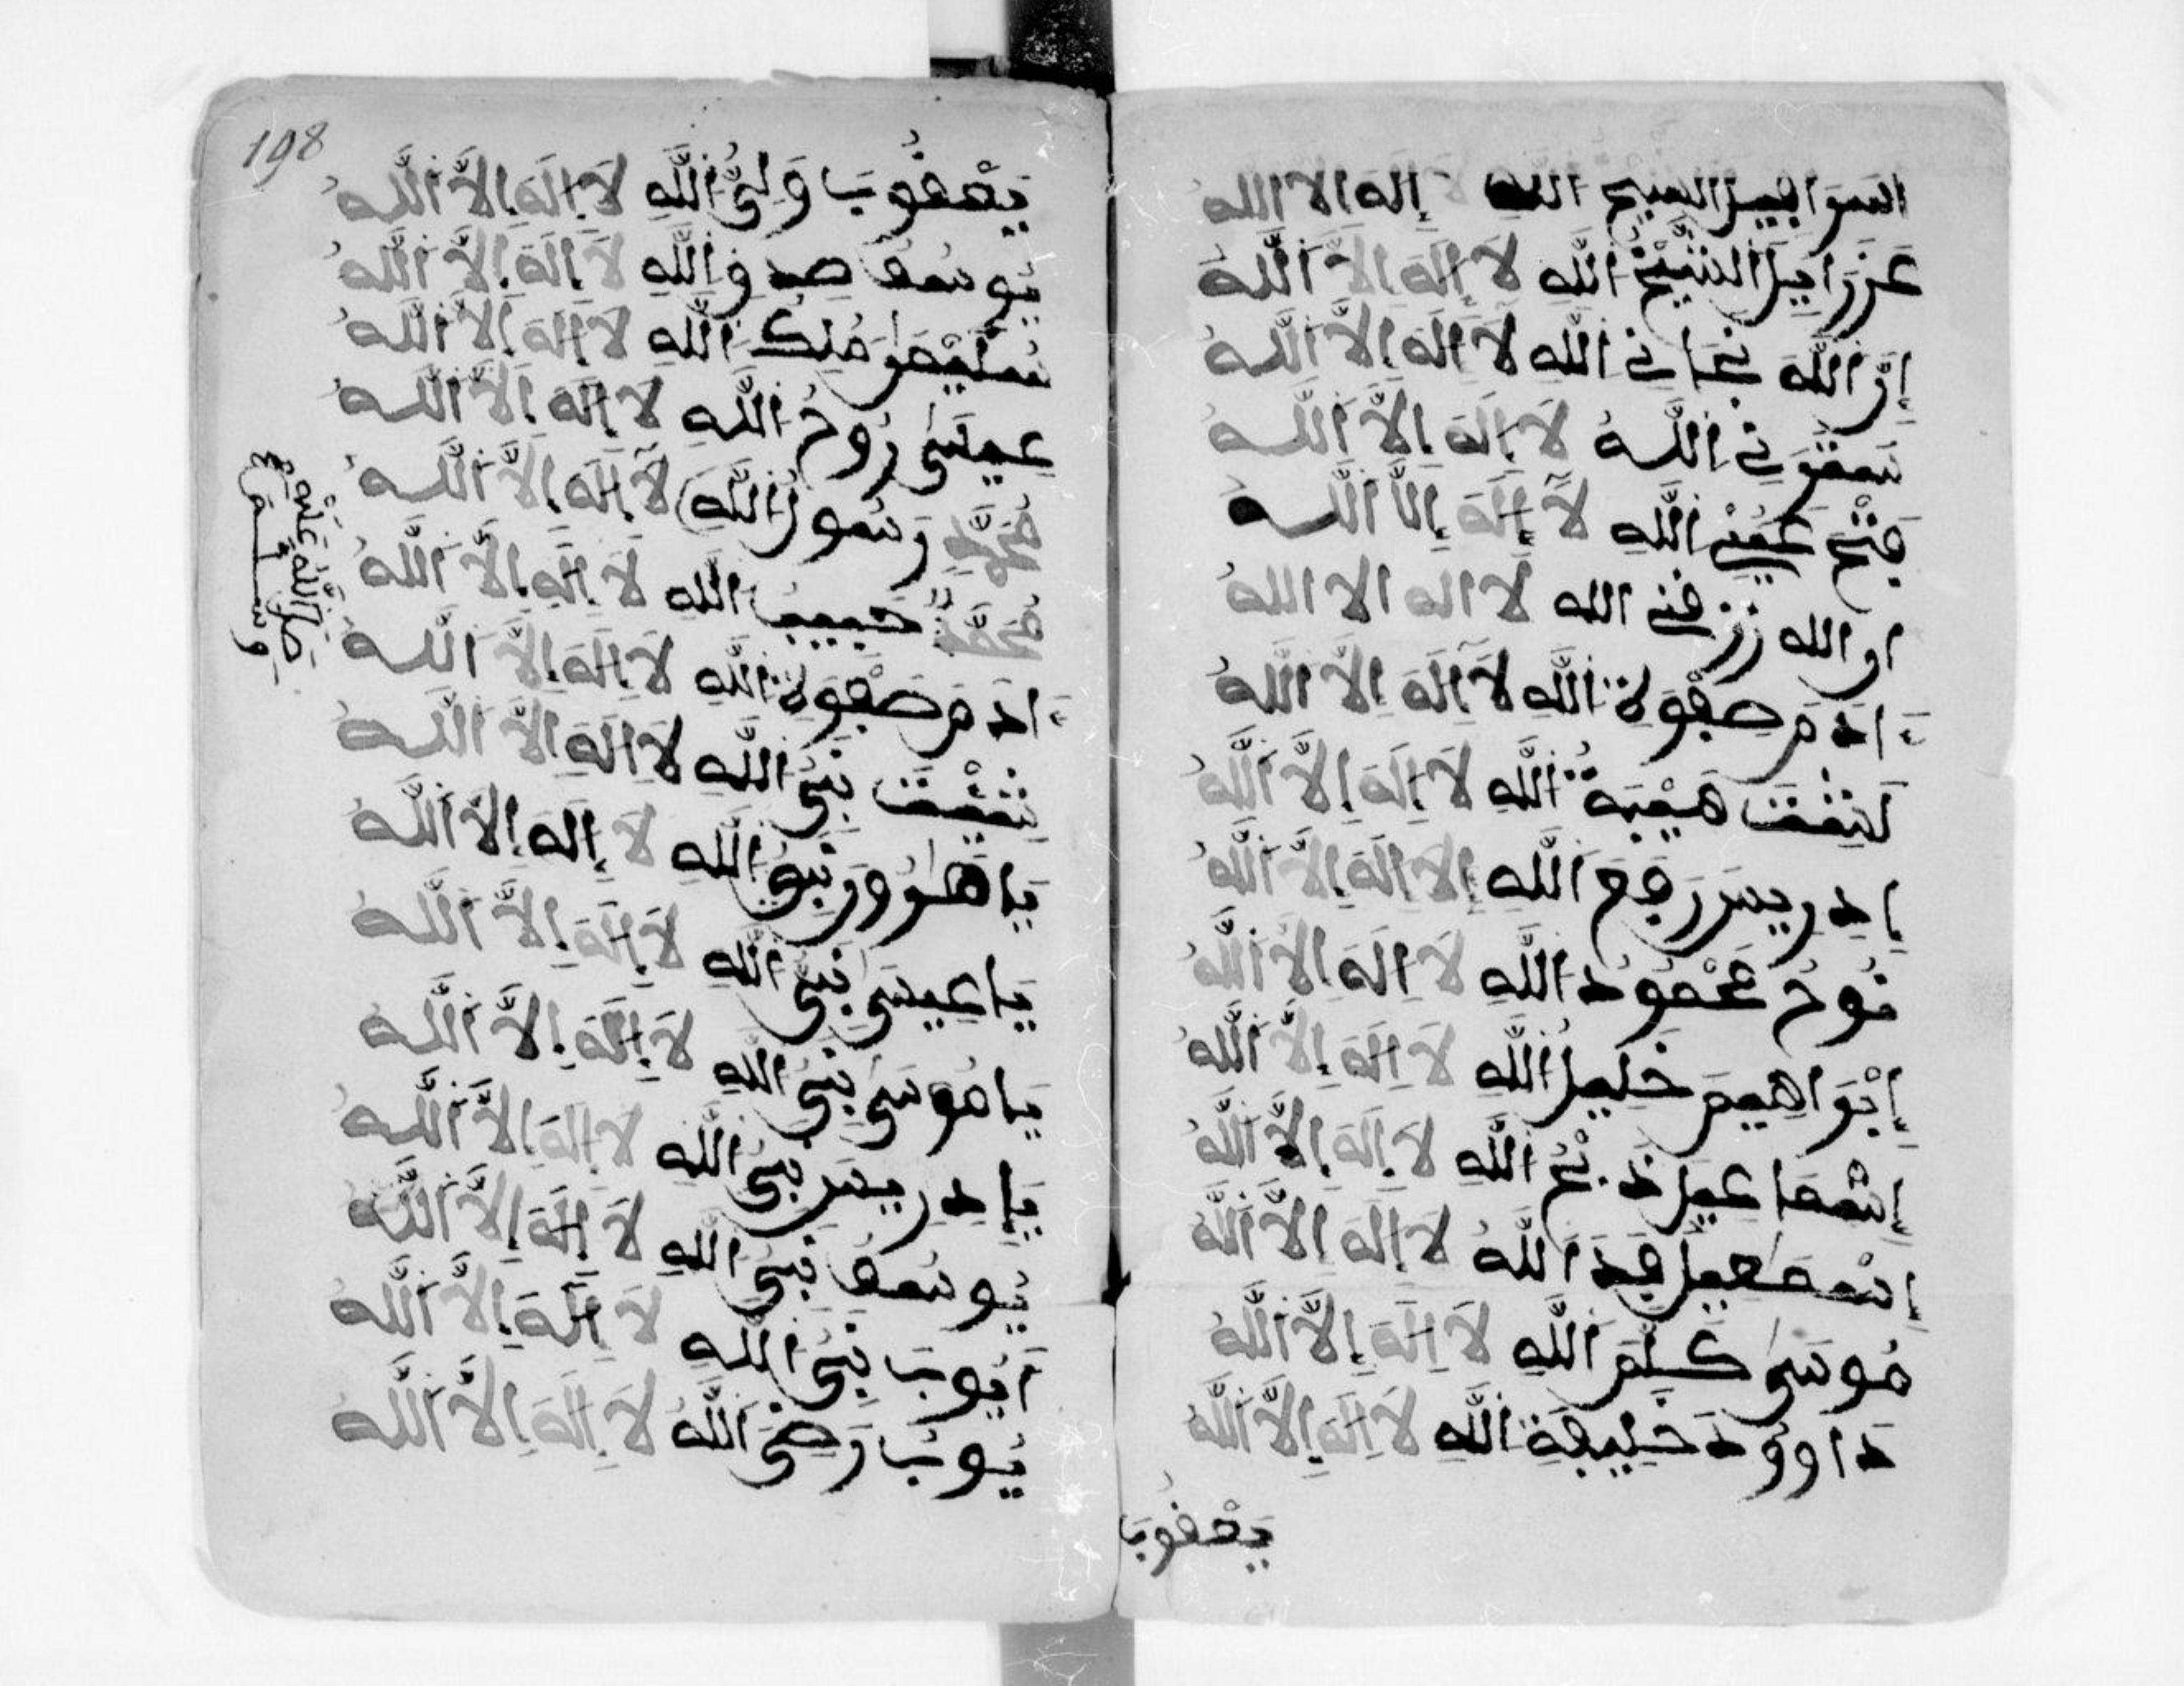 اسرافيل الشيخ الله لا إله الا الله
عَزْرَاءيلَ الشَّيْخُ اللَّهِ لَا إِلَهَ إِلَّا اللَّهُ
إِنَّ اللَّهَ نجاني اللَّهِ لَا إِلَهَ إِلَّا اللَّهُ
اللَّهُ لَا إِلَهَ إِلَّا اللَّهُ
اللَّهِ لَا إِلَهَ إِلَّا اللَّهُ
ان الله رزقني الله لا اله الا الله
ءَادَمَ صَفْوَةُ اللَّهِ لَا إِلَهَ إِلَّا اللَّهُ
هَيْبَةُ اللَّهِ لَا إِلَهَ إِلَّا اللَّهُ
إِدْرِيسَ رَفَعَ اللَّهِ إِلَا إِلَهَ إِلَّا اللَّهُ
نُوحُ مَحْمُودُ اللَّهِ لَا إِلَهَ إِلَّا اللَّهُ
إِبْرَاهِيمَ خَلِيلُ اللَّهِ لَا إِلَهَ إِلَّا اللَّهُ
إِسْمَاعِيلَ ذَبْحُ اللَّهِ لَا إِلَهَ إِلَّا اللَّهُ
إِسْمَعِيلَ فِدَ اللَّهُ لَا إِلَهَ إِلَّا اللَّهُ
مُوسَى كَلَّمَ اللَّهِ لَا إِلَهَ إِلَّا اللَّهُ
دَاوُودَ خَلِيفَةِ اللَّهِ لَا إِلَهَ إِلَّا اللَّهُ
يَعْقُوبَ
198
يَعْقُوبَ وَلِيُّ اللَّهِ لَا إِلَهَ إِلَّا اللَّهُ
يُوسُفَ صِدِقِ اللَّهِ لَا إِلَهَ إِلَّا اللَّهُ
سُلَيْمَنَ مُلْكُ اللَّهِ لَا إِلَهَ إِلَّا اللَّهُ
عِيسَى رُوحُ اللَّهِ لَا إِلَهَ إِلَّا اللَّهُ
مُحَمَّدٌ رَسُولُ اللَّهِ لَا إِلَهَ إِلَّا اللَّهُ
صَلَّى اللَّهُ عَلَيْهِ وَسَلَّمَ
مُحَمَّدٌ حَبِيبُ اللَّهِ لَا إِلَهَ إِلَّا اللَّهُ
ءَادَمَ صَفْوَةُ اللَّهِ لَا إِلَهَ إِلَّا اللَّهُ
شِيْثَ نَبِيُّ اللَّهِ لَا إِلَهَ إِلَّا اللَّهُ
يَا هَارُونَ نَبِيُّ اللَّهِ لَا إِلَهَ إِلَّا اللَّهُ
يَا عِيسَى نَبِيُّ اللَّهِ لَا إِلَهَ إِلَّا اللَّهُ
يَا مُوسَى نَبِيُّ اللَّهِ لَا إِلَهَ إِلَّا اللَّهُ
يَا إِدْرِيسَ نَبِيُّ اللَّهِ لَا إِلَهَ إِلَّا اللَّهُ
يُوسُفَ نَبِيُّ اللَّهِ لَا إِلَهَ إِلَّا اللَّهُ
أَيُّوبَ نَبِيُّ اللَّهِ لَا إِلَهَ إِلَّا اللَّهُ
يُوبَ رَضِيَ اللَّهُ لَا إِلَهَ إِلَّا اللَّهُ